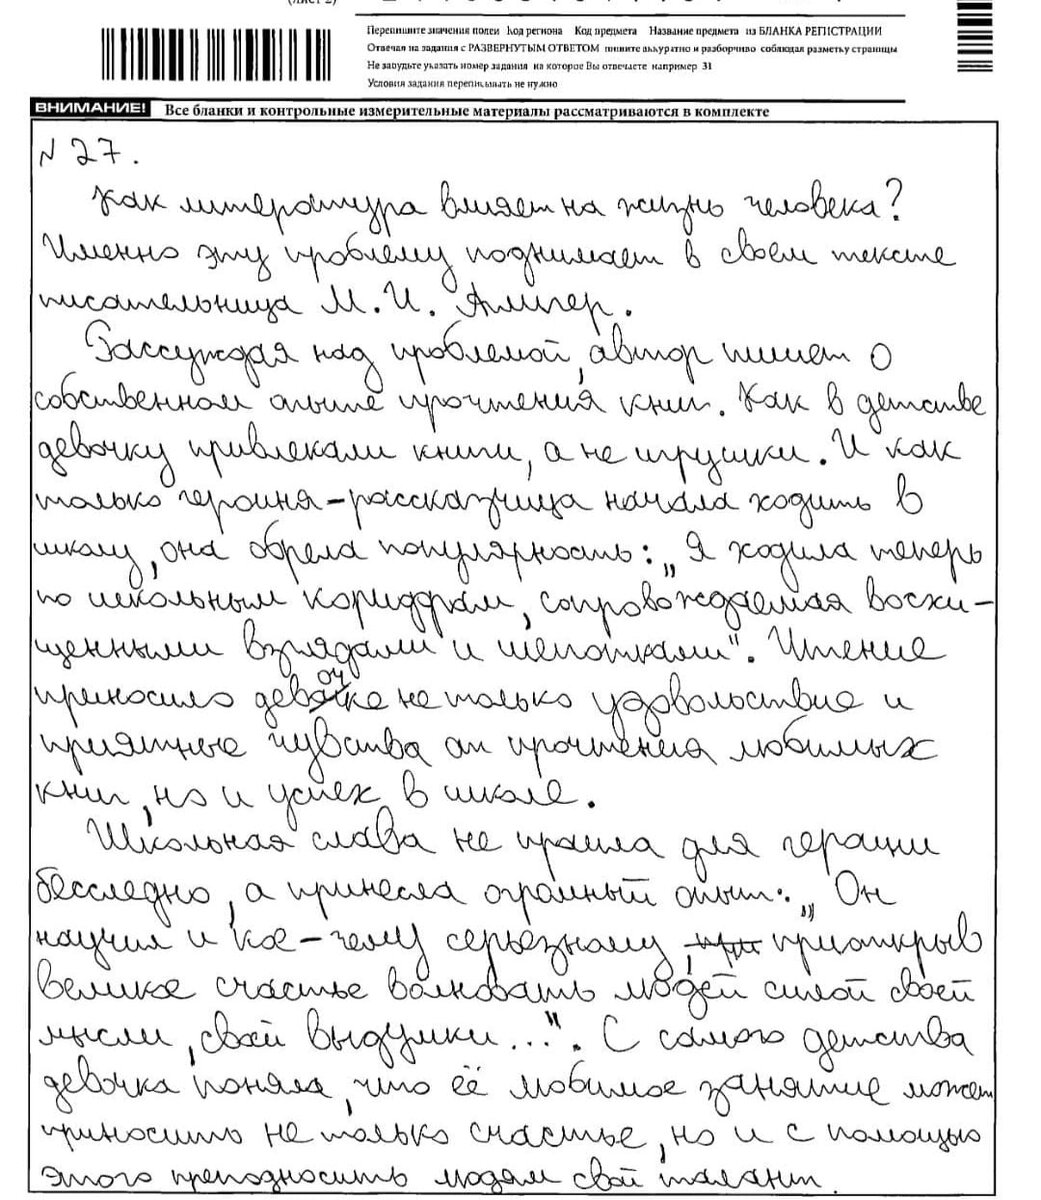 (лист 2)
Перепишите значения полей Код региона Код предмета Название предмета из БЛАНКА РЕГИСТРАЦИИ
Отвечая на задания с РАЗВЕРНУТЫМ ОТВЕТОМ пишите аккуратно и разборчиво соблюдая разметку страницы
Не забудьте указать номер задания на которое Вы отвечаете например 31
Условия задания переписывать не нужно
ВНИМАНИЕ! Все бланки и контрольные измерительные материалы рассматриваются в комплекте
№27.
Как литература влияет на жизнь человека?
Именно эту проблему поднимает в своем тексте
писательница М.И. Алигер.
Рассуждая над проблемой, автор пишет о
собственном опыте прочтения книг. Как в детстве
девочку привлекали книги, а не игрушки. И как
только героиня-рассказчица начала ходить в
школу, она обрела популярность: „Я ходила теперь
по школьным коридорам, сопровождаемая восхи-
щенными взглядами и шепотками". Чтение
приносило девочке не только удовольствие и
приятные чувства от прочтения любимых
книг, но и успех в школе.
Школьная слава не прошла для героини
бесследно, а принесла огромный опыт: „Он
научил и кое-чему серьезному, приоткрыв
великое счастье волновать людей силой своей
мысли, своей выдумки...". С самого детства
девочка поняла, что её любимое занятие может
приносить не только счастье, но и с помощью
этого преподносить людям свой талант.